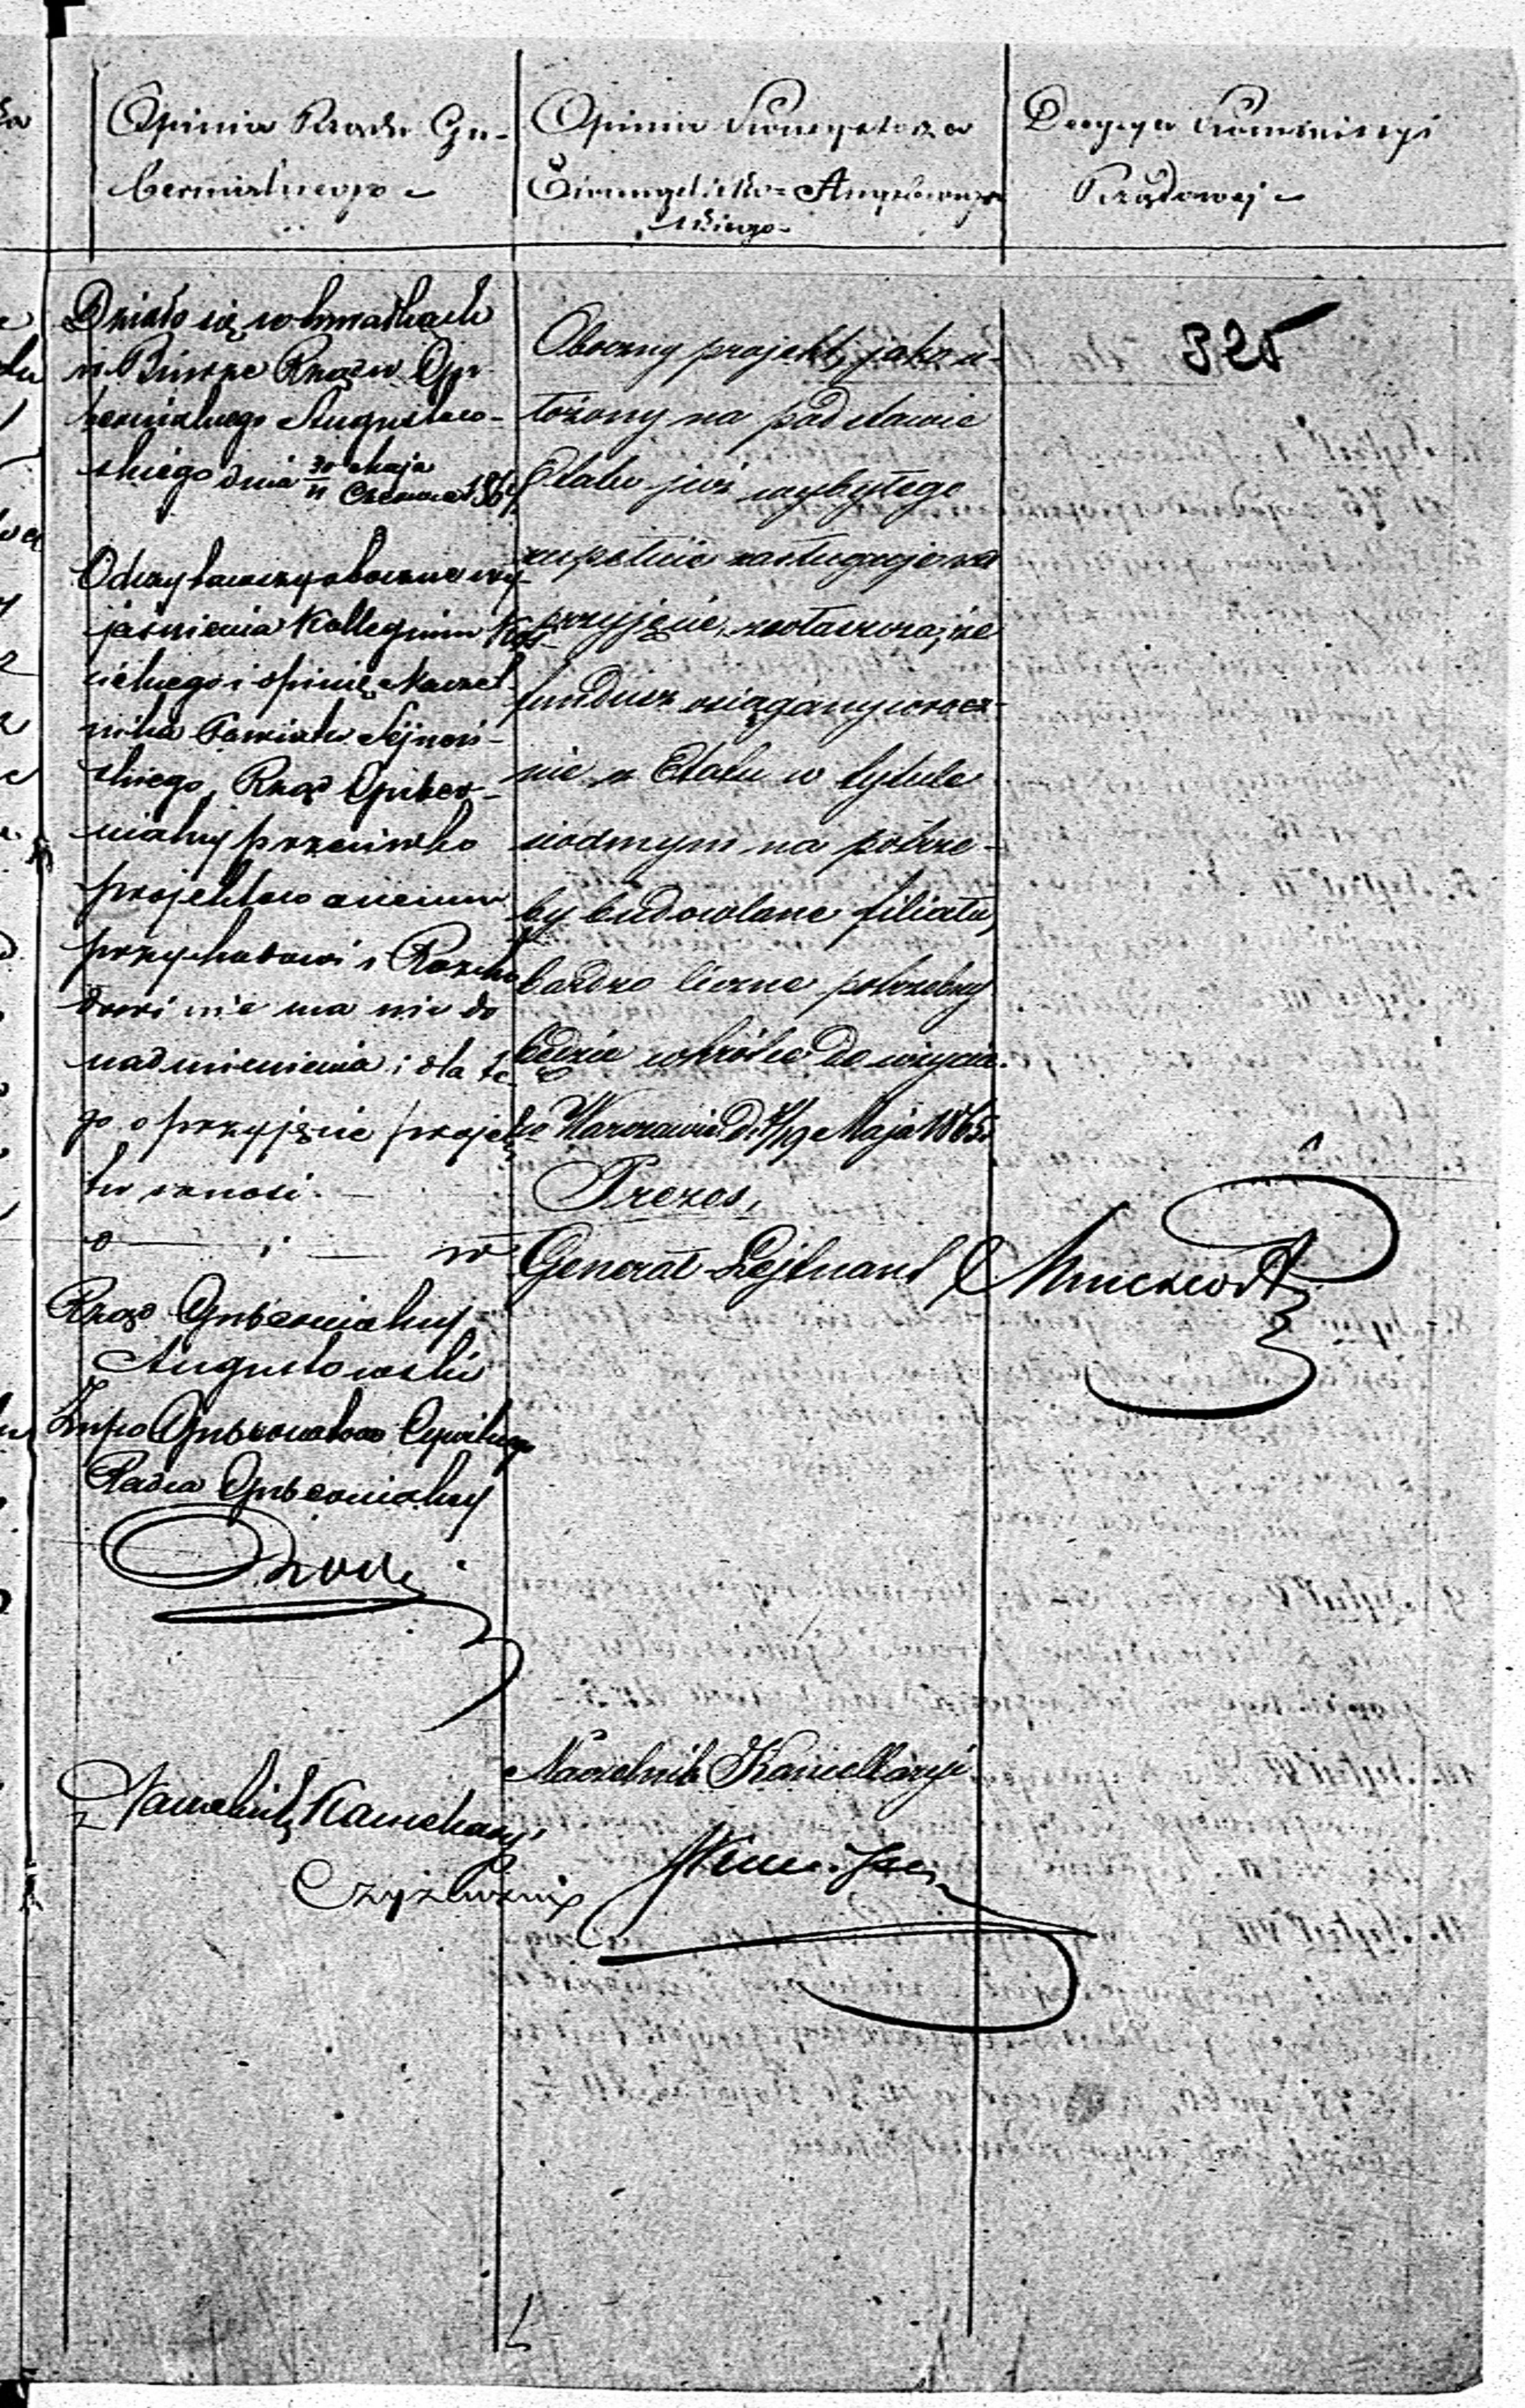 Opinia Rządu Gu-
bernialnego
Opinia Konsystorza
Ewangelicko-Augsburg-
skiego
Decyzya Kommissyi
Rządowej
Działo się w
w Biurze Rządu Gu-
bernialnego Augustow-
skiego dnia 30 Maja
11 Czerwca
Odczytawszy oboczne wy-
jaśnienia Kollegium Koś-
cielnego i opinię Naczel-
nika Powiatu Sejneń-
skiego, Rząd Guber-
nialny przeciwko
projektowanemu
przychodowi i Rozcho
dowi nie ma nic do
nadmienienia i dla te
go o przyjęcie projek
tu wnosi.
Rząd Gubernialny
Augustowski
Gubernatora Cywilnego
Radca Gubernialny
Naczelnik Kancelaryi
Czyżewski
325
Obecny projekt, jako u-
łożony na podstawie
Etatu już wybyłego
zupełnie zasługuje na
przyjęcie, zwłaszcza, że
fundusz osiągany corocz-
nie z Etatu w tytule
siódmym na potrze-
by budowlane filiału,
bardzo liczne potrzebny
będzie wkrótce do użycia.
w Warszawie d. 7/19 Maja 1865
Prezes,
Generał Lejtnant
Naczelnik Kancellaryi